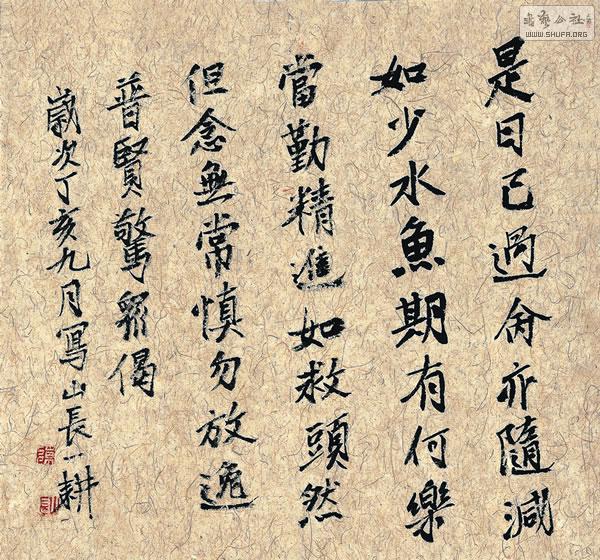 是日已過命亦隨減
如少水魚期有何樂
當勤精進如救頭然
但念無常慎勿放逸
普賢驚眾偈
歲次丁亥九月寫山長一耕
书艺公社
WWW.SHUFA.ORG